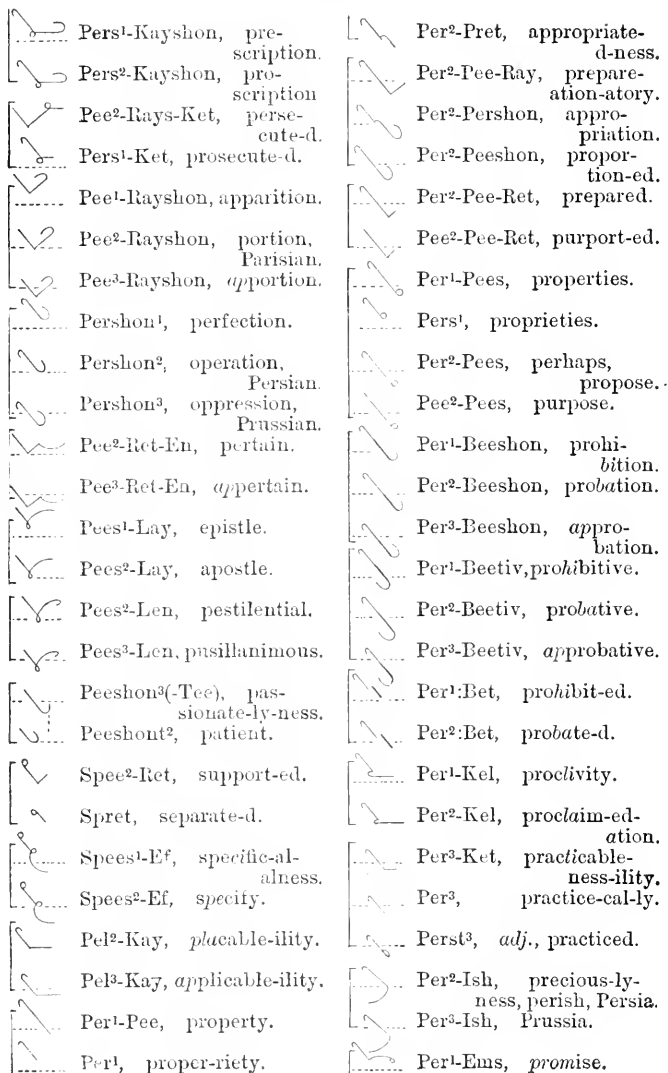 Pers¹-Kayshon, pre-
scription.
Pers²-Kayshon, pro-
scription
Pee²-Rays-Ket, perse-
cute-d.
Pers¹-Ket, prosecute-d.
Pee¹-Rayshon, apparition.
Pee²-Rayshon, portion,
Parisian.
Pee³-Rayshon, apportion.
Pershon¹, perfection.
Pershon², operation,
Persian.
Pershon³, oppression,
Prussian.
Pee²-Ret-En, pertain.
Pee³-Ret-En, appertain.
Pees¹-Lay, epistle.
Pees²-Lay, apostle.
Pees²-Len, pestilential.
Pees³-Len, pusillanimous.
Peeshon³(-Tee), pas-
sionate-ly-ness.
Peeshont², patient.
Spee²-Ret, support-ed.
Spret, separate-d.
Spees¹-Ef, specific-al-
alness.
Spees²-Ef, specify.
Pel²-Kay, placable-ility.
Pel³-Kay, applicable-ility.
Per¹-Pee, property.
Per¹, proper-riety.
Per²-Pret, appropriate-
d-ness.
Per²-Pee-Ray, prepare-
ation-atory.
Per²-Pershon, appro-
priation.
Per²-Peeshon, propor-
tion-ed.
Per²-Pee-Ret, prepared.
Pee²-Pee-Ret, purport-ed.
Per¹-Pees, properties.
Pers¹, proprieties.
Per²-Pees, perhaps,
propose.
Pee²-Pees, purpose.
Per¹-Beeshon, prohi-
bition.
Per²-Beeshon, probation.
Per³-Beeshon, appro-
bation.
Per¹-Beetiv, prohibitive.
Per²-Beetiv, probative.
Per³-Beetiv, approbative.
Per¹:Bet, prohibit-ed.
Per²:Bet, probate-d.
Per¹-Kel, proclivity.
Per²-Kel, proclaim-ed-
ation.
Per³-Ket, practicable-
ness-ility.
Per³, practice-cal-ly.
Perst³, adj., practiced.
Per²-Ish, precious-ly-
ness, perish, Persia.
Per³-Ish, Prussia.
Per¹-Ems, promise.